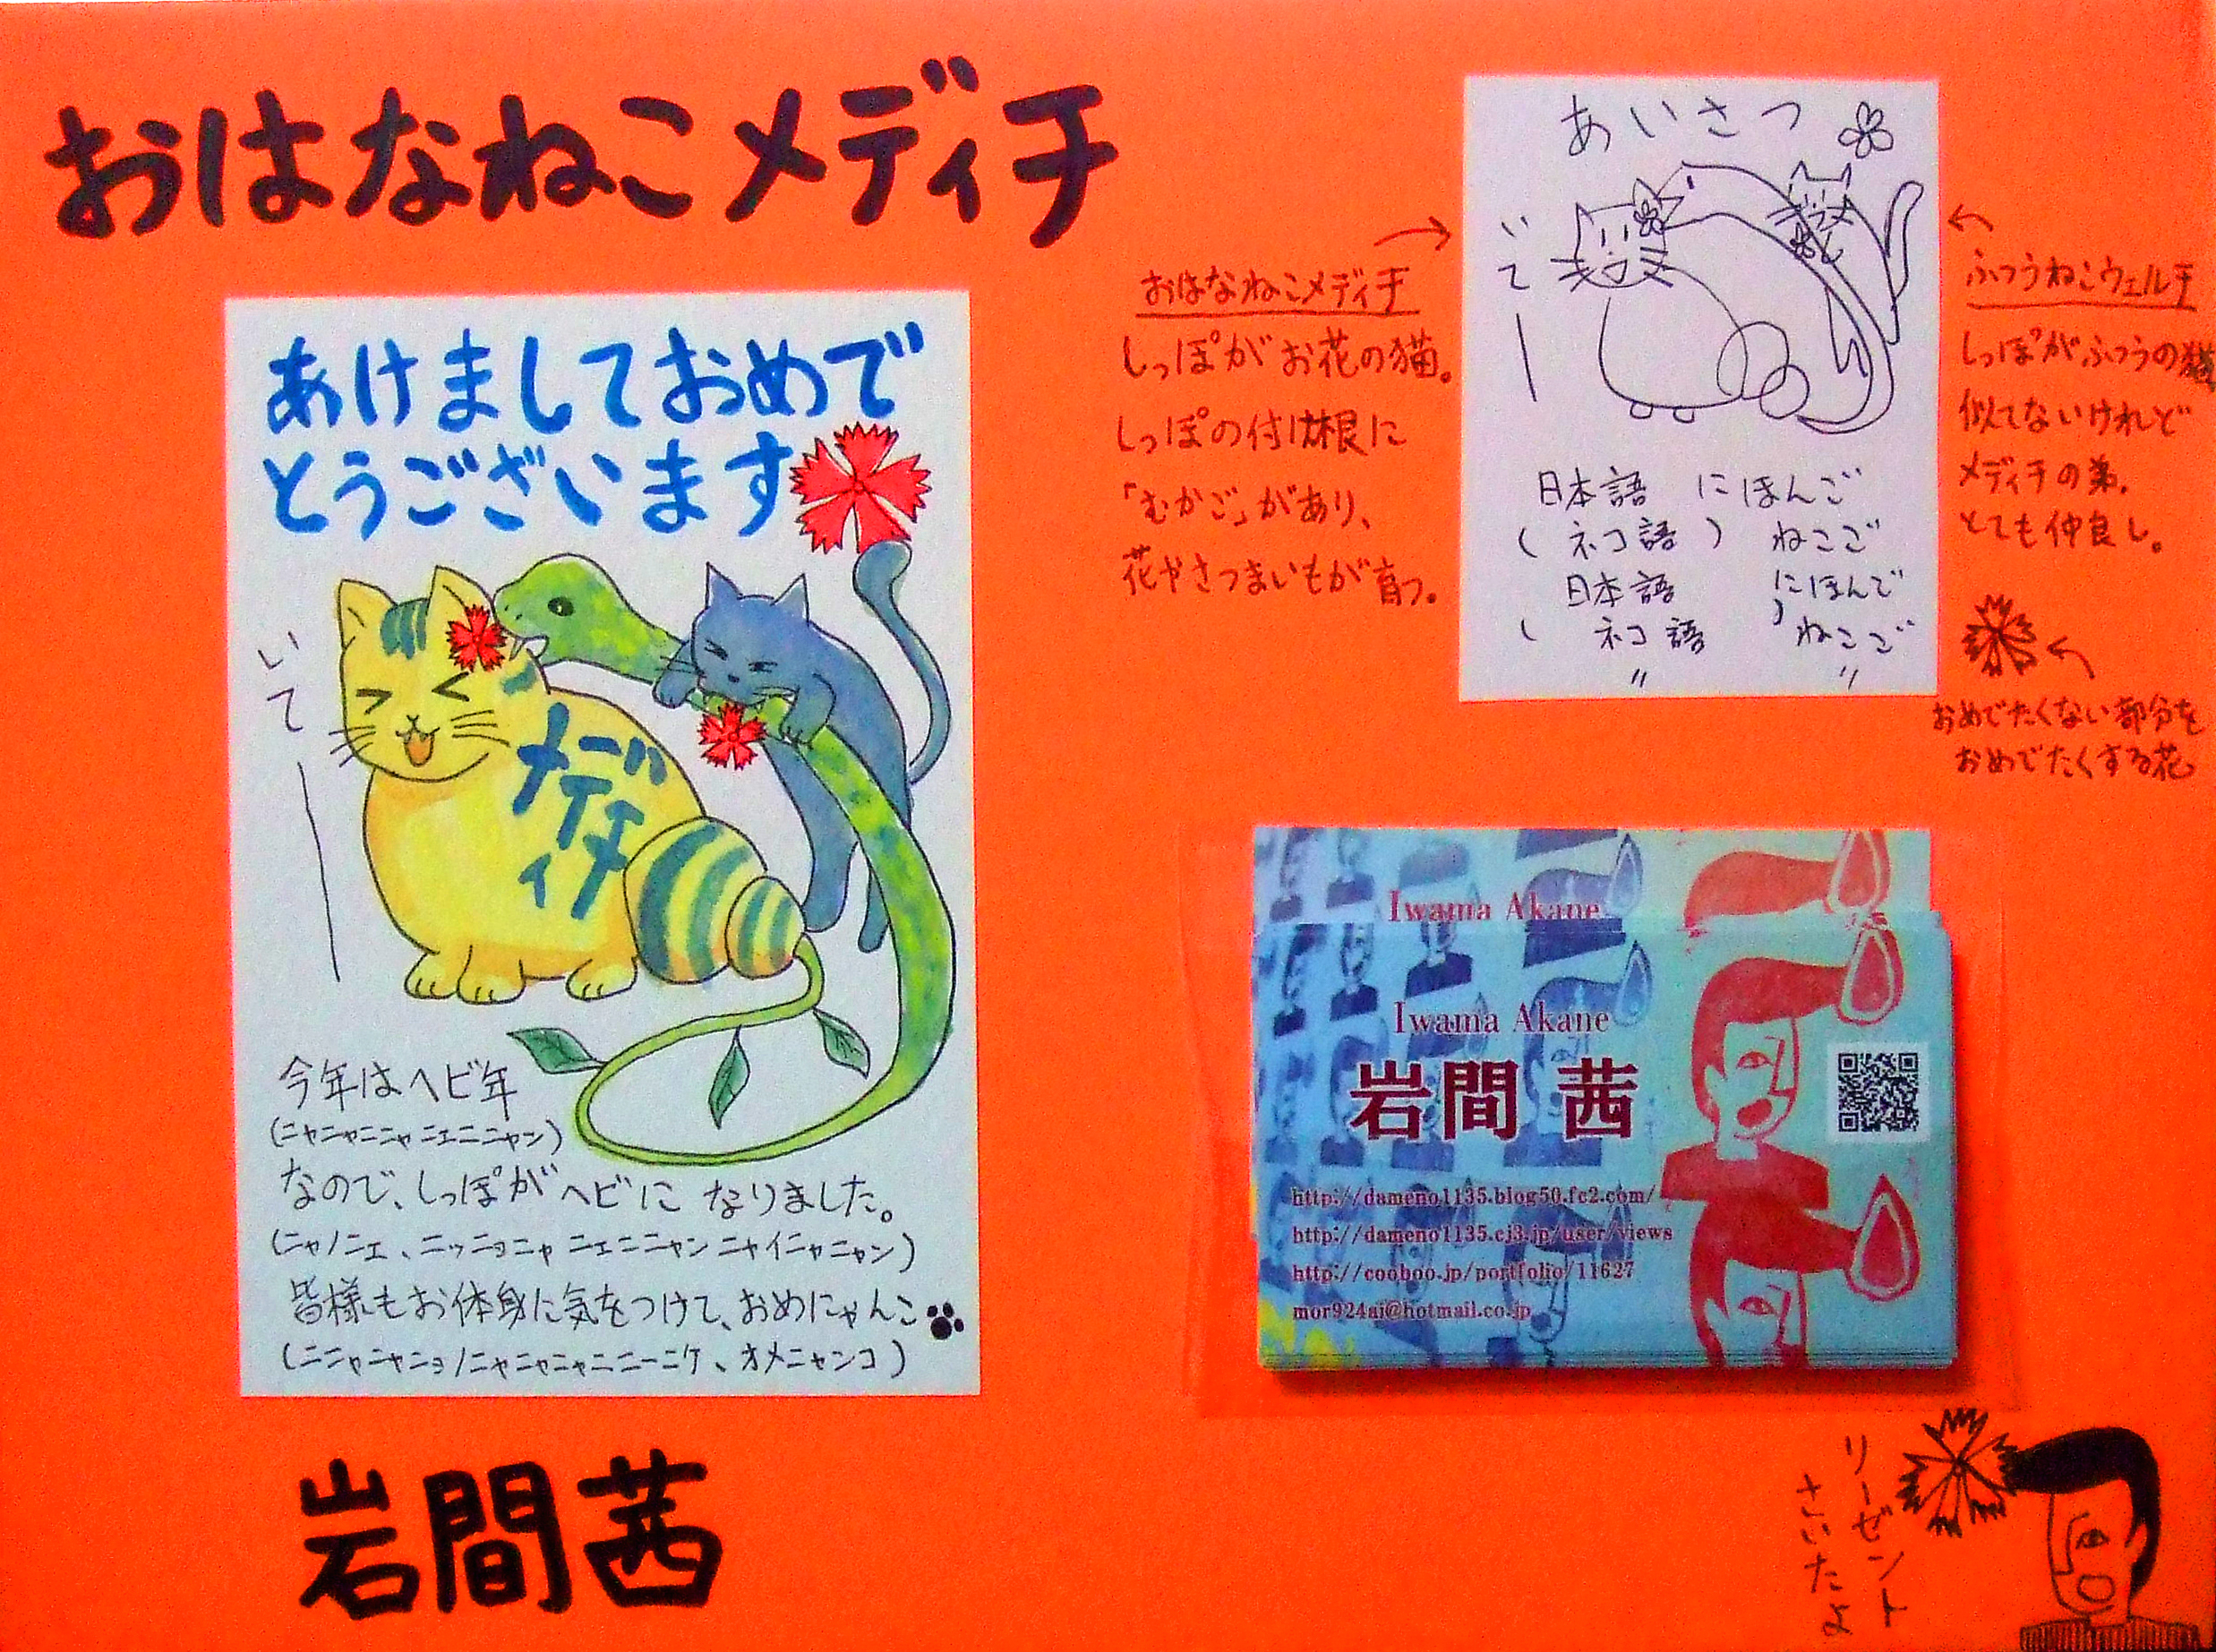 おはなねこメディチ
あけましておめで
とうございます
いてー
メディチ
今年はヘビ年
(ニャニャニニャ ニエニニャン)
なので、しっぽがヘビに なりました。
(ニャノニエ、ニッニョニャ ニエニニャン ニャイニャニャン)
皆様もお体身に気をつけて、おめにゃんこ
(ニニャニャニョノニャニャニャニニーニケ、オメニャンコ)
岩間茜
おはなねこメディチ
しっぽがお花の猫。
しっぽの付け根に
「むかご」があり、
花やさつまいもが育つ。
あいさつ
いてー
日本語 にほんご
(ネコ語) ねこご
日本語 にほんで
( ネコ語 ) ねこご
〃 〃
ふつうねこウェルチ
しっぽがふつうの猫
似てないけれど
メディチの弟。
とても仲良し。
おめでたくない部分を
おめでたくする花
Iwama Akane
Iwama Akane
岩間 茜
http://dameno1135.blog50.fc2.com/
http://dameno1135.cj3.jp/user/views
http://cooboo.jp/portfolio/11627
mor924ai@hotmail.co.jp
リーゼント
さいたよ